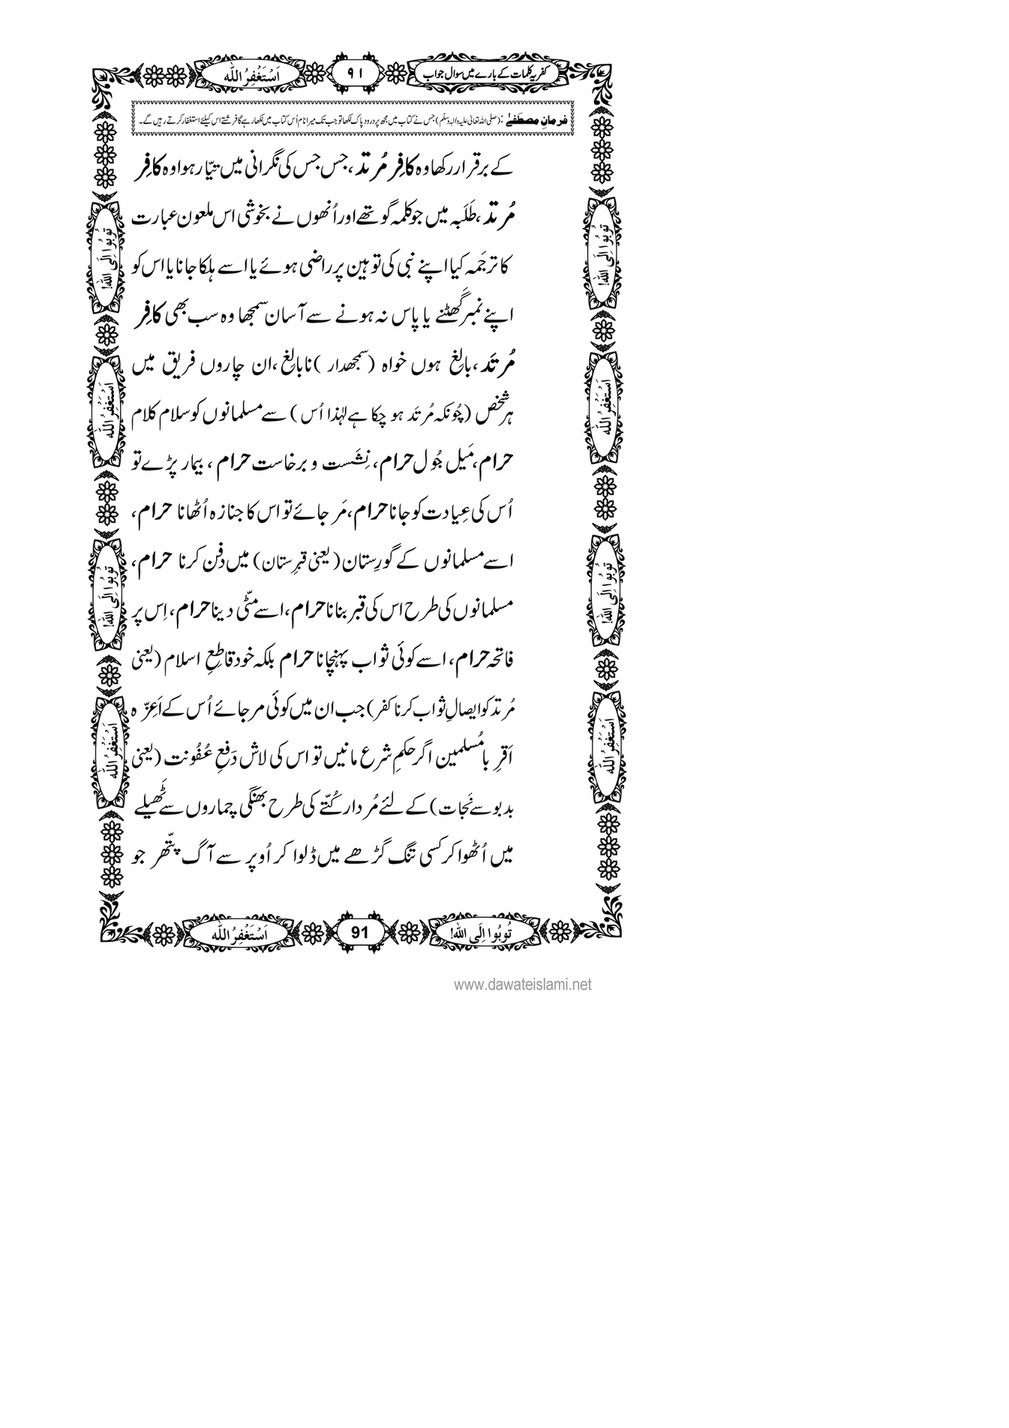 کفریہ کلمات کے بارے میں سوال جواب ۹۱ اَسْتَغْفِرُ اللّٰه
فرمانِ مصطَفٰے :(صلی اللہ تعالیٰ علیہ والہ وسلم) جس نے کتاب میں مجھ پر درود پاک لکھا تو جب تک میرا نام اُس کتاب میں لکھا رہے گا فرشتے اس کیلئے استغفار کرتے رہیں گے۔
کے برقرار رکھا وہ کافِر مُرتد، جس جس کی نگرانی میں تیّار ہوا وہ کافِر
مُرتد، طَلَبہ میں جو کلمہ گو تھے اور اُنھوں نے بخوشی اس ملعون عبارت
کا ترجَمہ کیا اپنے نبی کی توہین پر راضی ہوئے یا اسے ہلکا جانا یا اس کو
اپنے نمبر گَھٹنے یا پاس نہ ہونے سے آسان سمجھا وہ سب بھی کافِر
مُرتَد، بالِغ ہوں خواہ (سمجھدار) نابالِغ، ان چاروں فریق میں
ہر شخص (چُونکہ مُرتَد ہو چکا ہے لہٰذا اُس) سے مسلمانوں کو سلام کلام
حرام، مَیل جُول حرام، نِشَست و برخاست حرام، بیمار پڑے تو
اُس کی عِیادت کو جانا حرام، مَر جائے تو اس کا جنازہ اُٹھانا حرام،
اسے مسلمانوں کے گورِستان (یعنی قبرِستان) میں دَفن کرنا حرام،
مسلمانوں کی طرح اس کی قبر بنانا حرام، اسے مٹّی دینا حرام، اِس پر
فاتحہ حرام، اسے کوئی ثواب پہنچانا حرام بلکہ خود قاطِعِ اسلام (یعنی
مُرتد کو ایصالِ ثواب کرنا کفر) جب ان میں کوئی مر جائے اُس کے اَعِزّہ
اَقرِبا مُسلمین اگر حکمِ شرع مانیں تو اس کی لاش دَفعِ عُفُونت (یعنی
بدبو سے نَجات) کے لئے مُردار کُتّے کی طرح بھنگی چماروں سے ٹَھیلے
میں اُٹھوا کر کسی تنگ گڑھے میں ڈلوا کر اُوپر سے آگ پتّھر جو
تُوبُوا اِلَی اللّٰه!
اَسْتَغْفِرُ اللّٰه
تُوبُوا اِلَی اللّٰه!
اَسْتَغْفِرُ اللّٰه
تُوبُوا اِلَی اللّٰه!
اَسْتَغْفِرُ اللّٰه
تُوبُوا اِلَی اللّٰه!
اَسْتَغْفِرُ اللّٰه
تُوبُوا اِلَی اللّٰه! 91 اَسْتَغْفِرُ اللّٰه
www.dawateislami.net